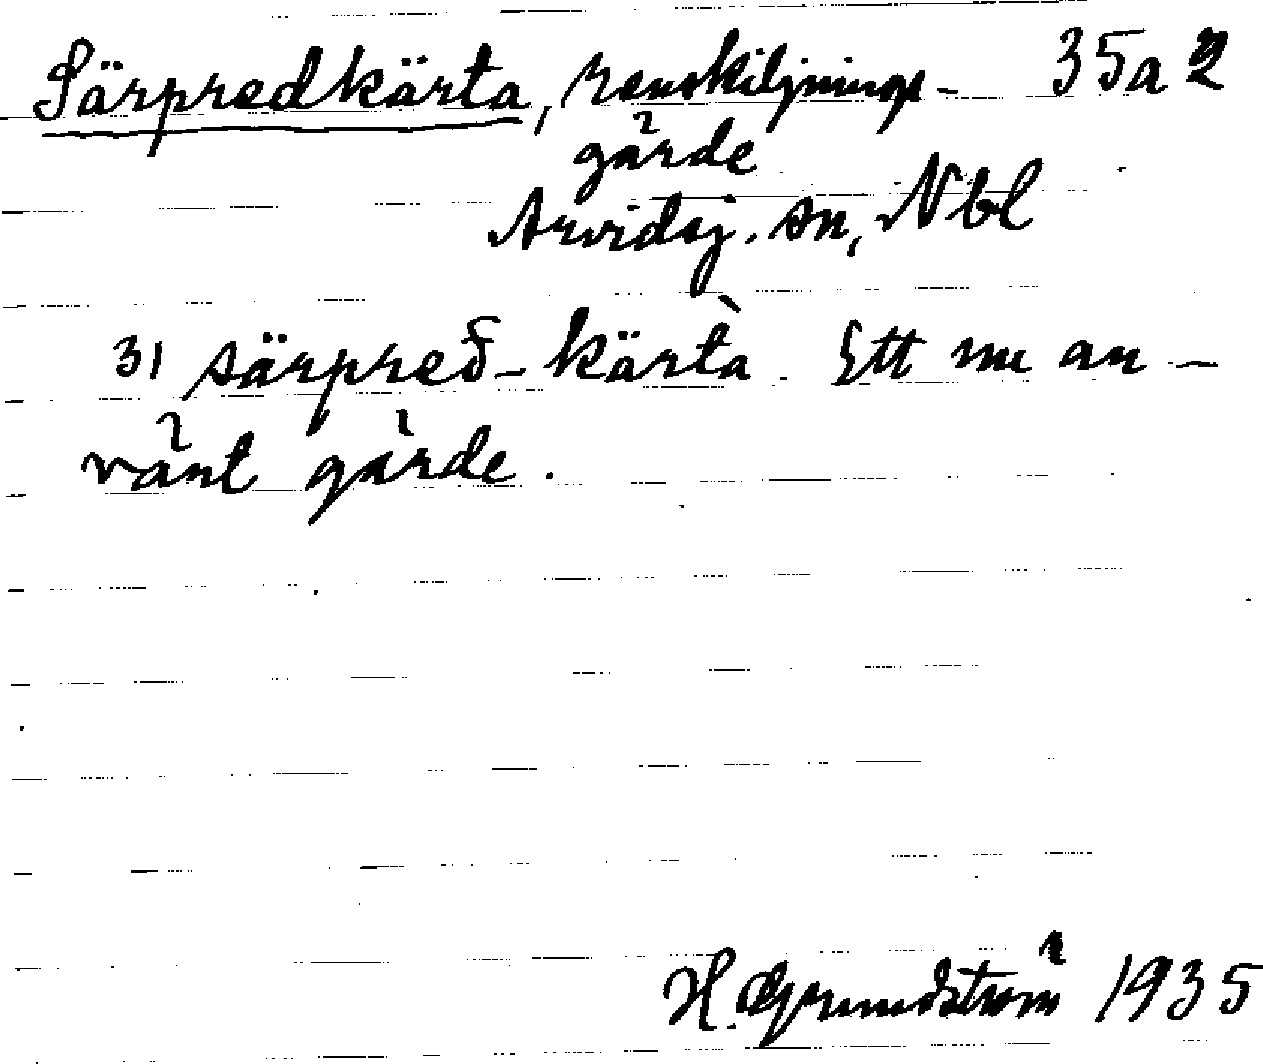 Särpredkärta, renskiljnings- 35a 2
gärde
Arvidsj. sn, Nbl
31 särpreδ-kärta. Ett nu an-
vänt gärde.
H. Grundström 1935